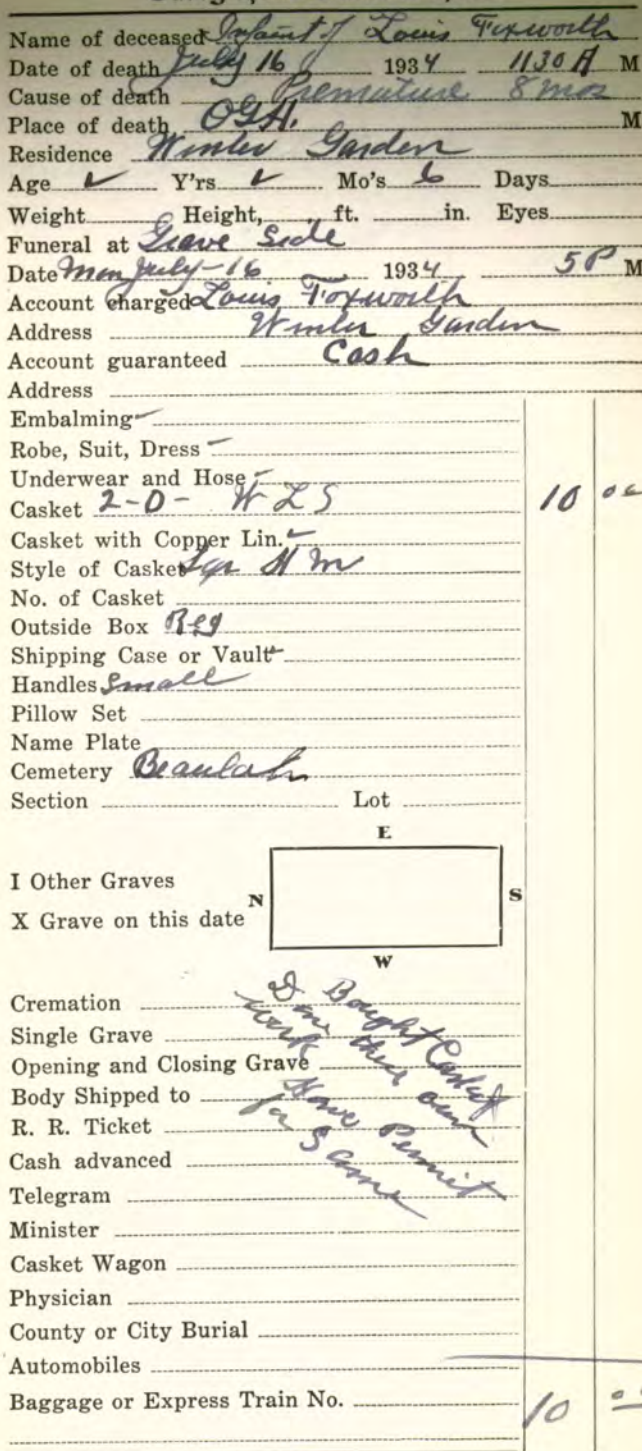 Name of deceased Infant of Louis Foxworth
Date of death July 16 1934 1130 A M
Cause of death Premature 8 mos
Place of death O.G.H. M
Residence Winter Garden
Age ✓ Y'rs ✓ Mo's 6 Days
Weight Height, ft. in. Eyes
Funeral at Grave Side
Date Mon July-16 1934 5 P M
Account charged Louis Foxworth
Address Winter Garden
Account guaranteed Cash
Address
Embalming -
Robe, Suit, Dress -
Underwear and Hose -
Casket 2-0- W L S 10 00
Casket with Copper Lin. -
Style of Casket Sqr H M
No. of Casket
Outside Box Reg
Shipping Case or Vault -
Handles Small
Pillow Set
Name Plate
Cemetery Beaulah
Section Lot
E
I Other Graves
N S
X Grave on this date
W
Cremation
Single Grave
Opening and Closing Grave
Body Shipped to
R. R. Ticket
Cash advanced
Telegram
Minister
Casket Wagon
Physician
County or City Burial
Automobiles
Baggage or Express Train No. 10 00
Bought Casket
Done their own
work
Have Permit
for Same